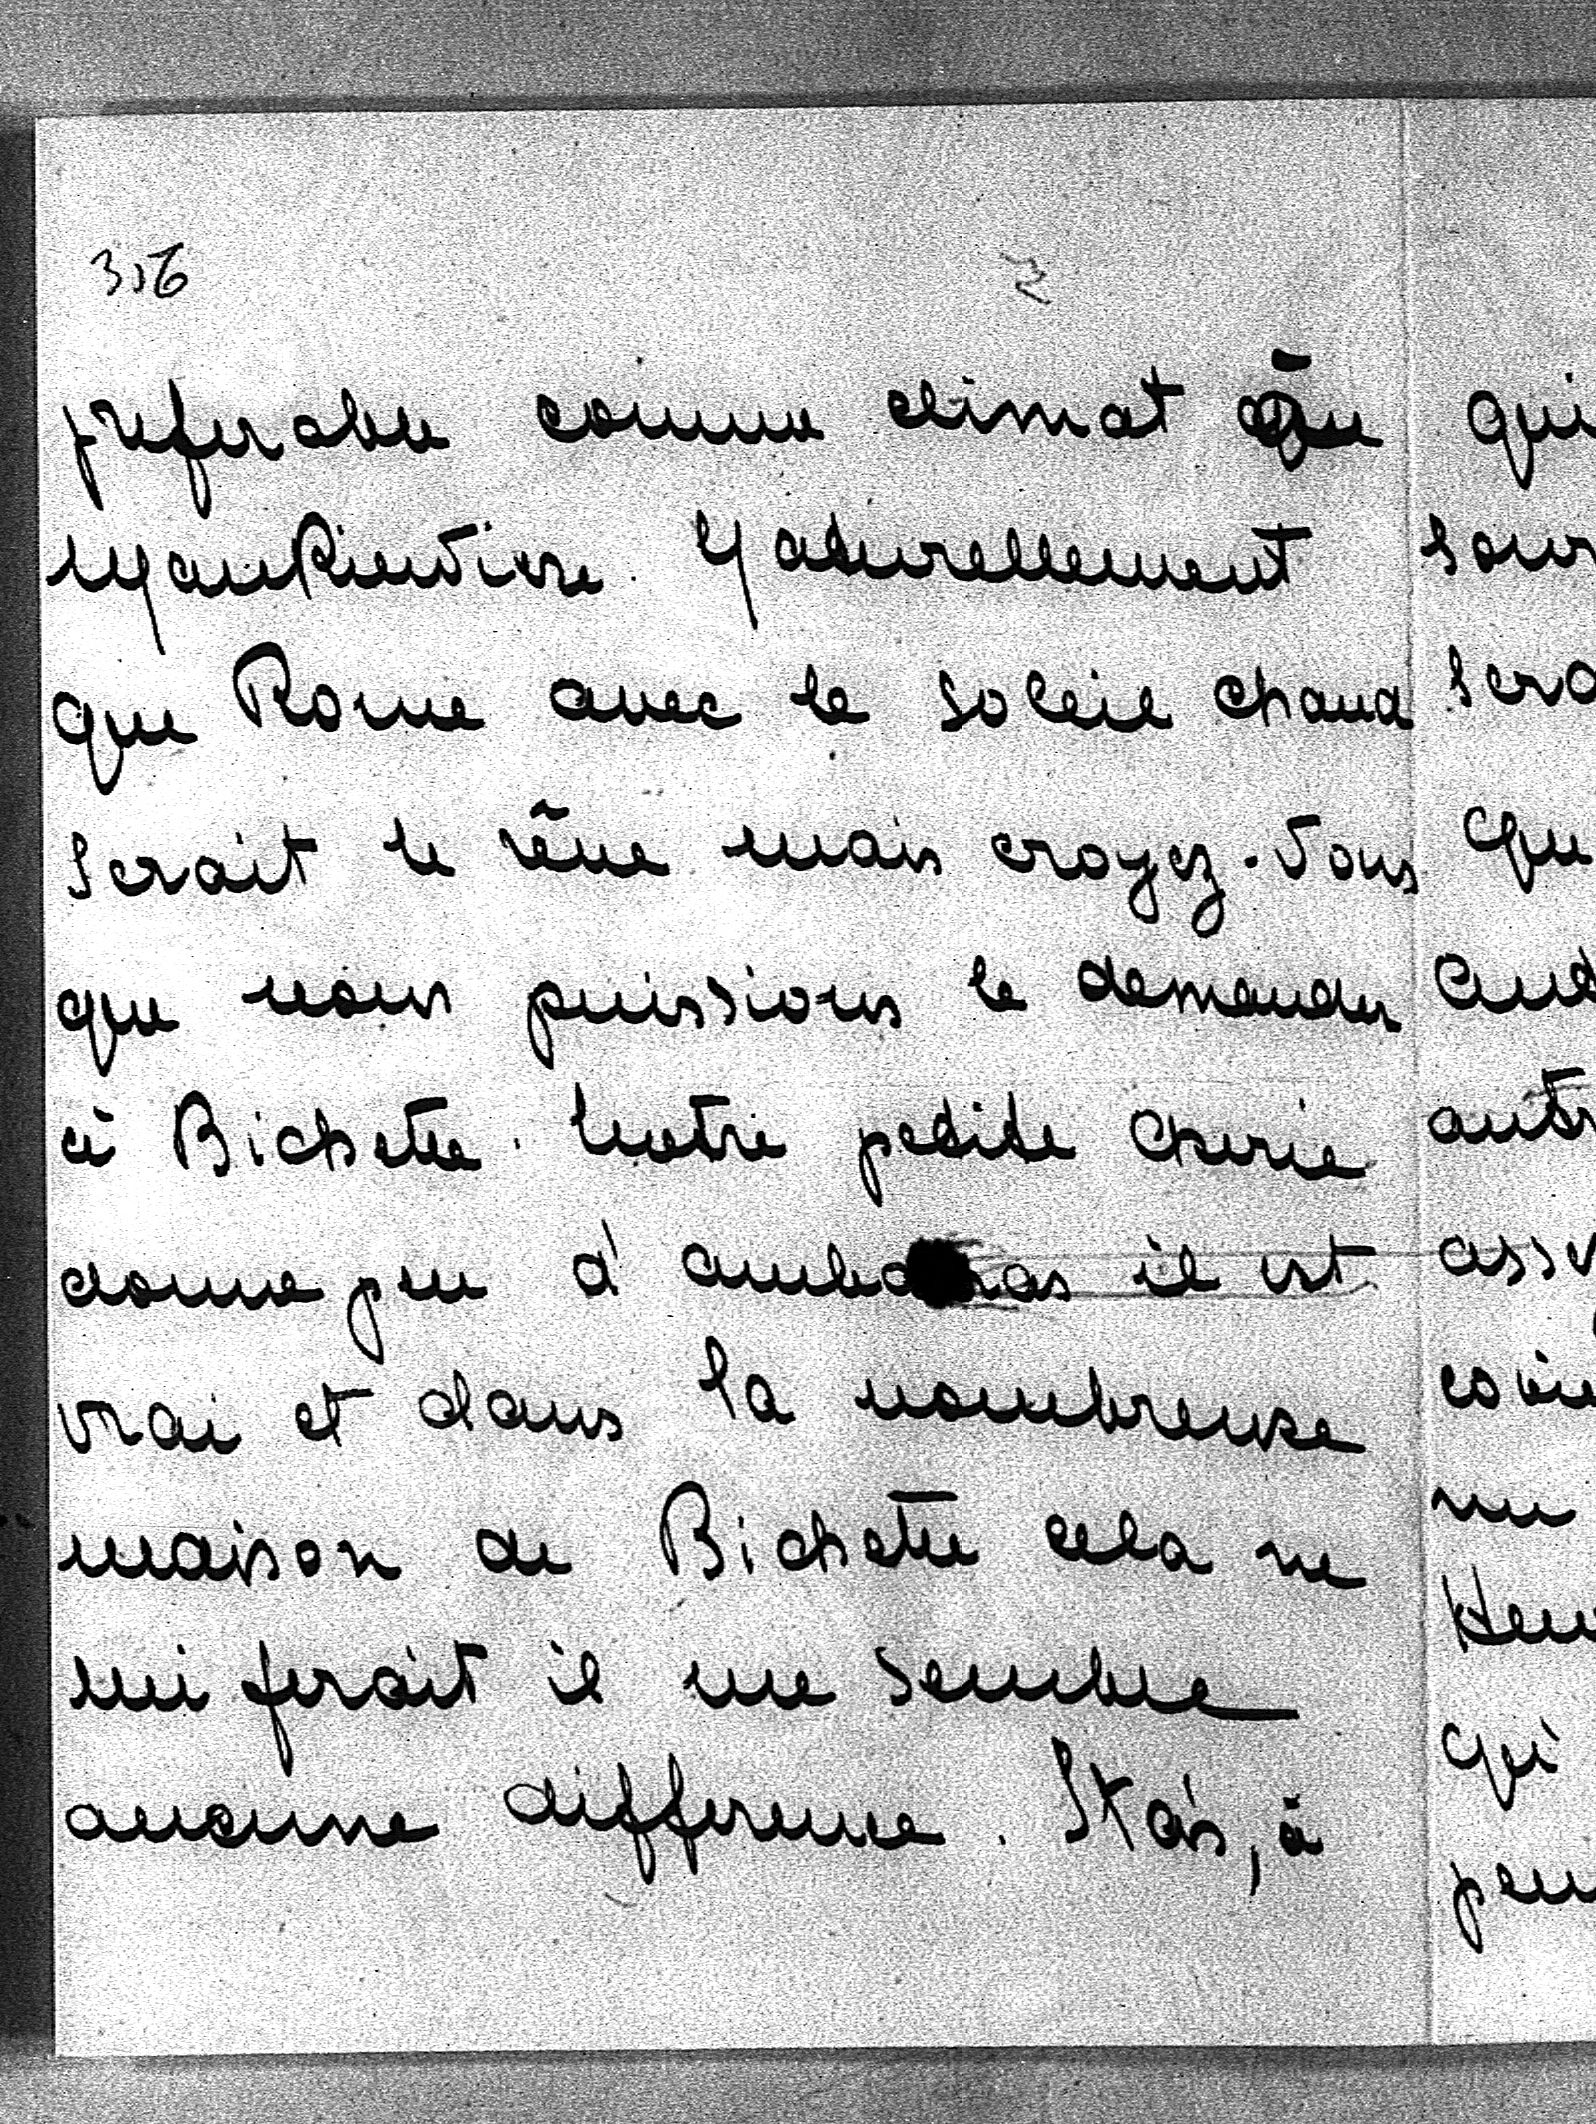 316
2
preferable comme climat que
Mankiewicze. Naturellement
que Rome avec le soleil chaud
serait le rêve mais croyez-vous
que nous puissions le demander
à Bichette. Notre petite cherie
donne peu d'embarras il est
vrai et dans la nombreuse
maison de Bichette cela ne
lui ferait il me semble
aucune difference. Stas, à
qui
qu
autr
qui